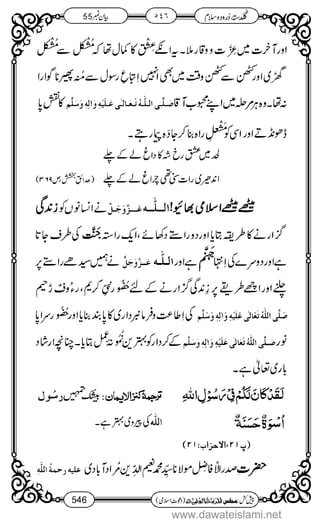 گلدستۂ دُرود و سلام ٥٤٦ بیان نمبر 55
اور آخرت میں عزّت و وقار ملا۔ یہ ان کے عشق کا کمال تھا کہ مُشکِل سے مُشکِل
گھڑی اور کٹھن سے کٹھن وقت میں بھی انہیں اِتباعِ رسول سے مُنہ پھیرنا گوارا
نہ تھا۔ وہ ہر مرحلہ میں اپنے محبوب آقا صَلَّی اللہُ تَعَالٰی عَلَیْہِ وَاٰلِہٖ وَسَلَّم کا نقشِ پا
ڈھونڈتے اور اسی کو مشعلِ راہ بنا کر جادہ پیما رہتے۔
لحد میں عشقِ رُخِ شہ کا داغ لے کے چلے
اندھیری رات سنی تھی چراغ لے کے چلے (حدائقِ بخشش، ص ٣٦٩)
میٹھے میٹھے اسلامی بھائیو! اللہ عَزَّوَجَلَّ نے انسانوں کو زندگی
گزارنے کا طریقہ بتایا اور دو راستے دکھائے، ایک راستہ جنّت کی طرف جاتا
ہے اور دوسرے کی اِنتہا جہنّم ہے اور اللہ عَزَّوَجَلَّ نے ہمیں سیدھے راستے پر
چلنے اور اچھے طریقے پر زندگی گزارنے کے لئے حُضُور نبیِّ کریم، رءوفٌ رَّحیم
صَلَّی اللہُ تَعَالٰی عَلَیْہِ وَاٰلِہٖ وَسَلَّم کی اِطاعت و فرمانبرداری کا پابند بنایا اور حُضُور سراپا
نور صَلَّی اللہُ تَعَالٰی عَلَیْہِ وَاٰلِہٖ وَسَلَّم کے کردار کو بہترین نمونۂ عمل بتایا۔ چنانچہ ارشادِ
باری تعالٰی ہے۔
لَقَدْ كَانَ لَكُمْ فِیْ رَسُوْلِ اللّٰهِ ترجمۂ کنزالایمان: بیشک تمہیں رسول
اُسْوَةٌ حَسَنَةٌ اللہ کی پیروی بہتر ہے۔
(پ ٢١، الاحزاب: ٢١)
حضرت صدرُ الْاَفاضِل مولانا سیِّد محمد نعیم الدِّین مُراد آبادی علیہ رحمۃُ اللہ
546 پیش کش: مجلس (دعوتِ اسلامی)
www.dawateislami.net